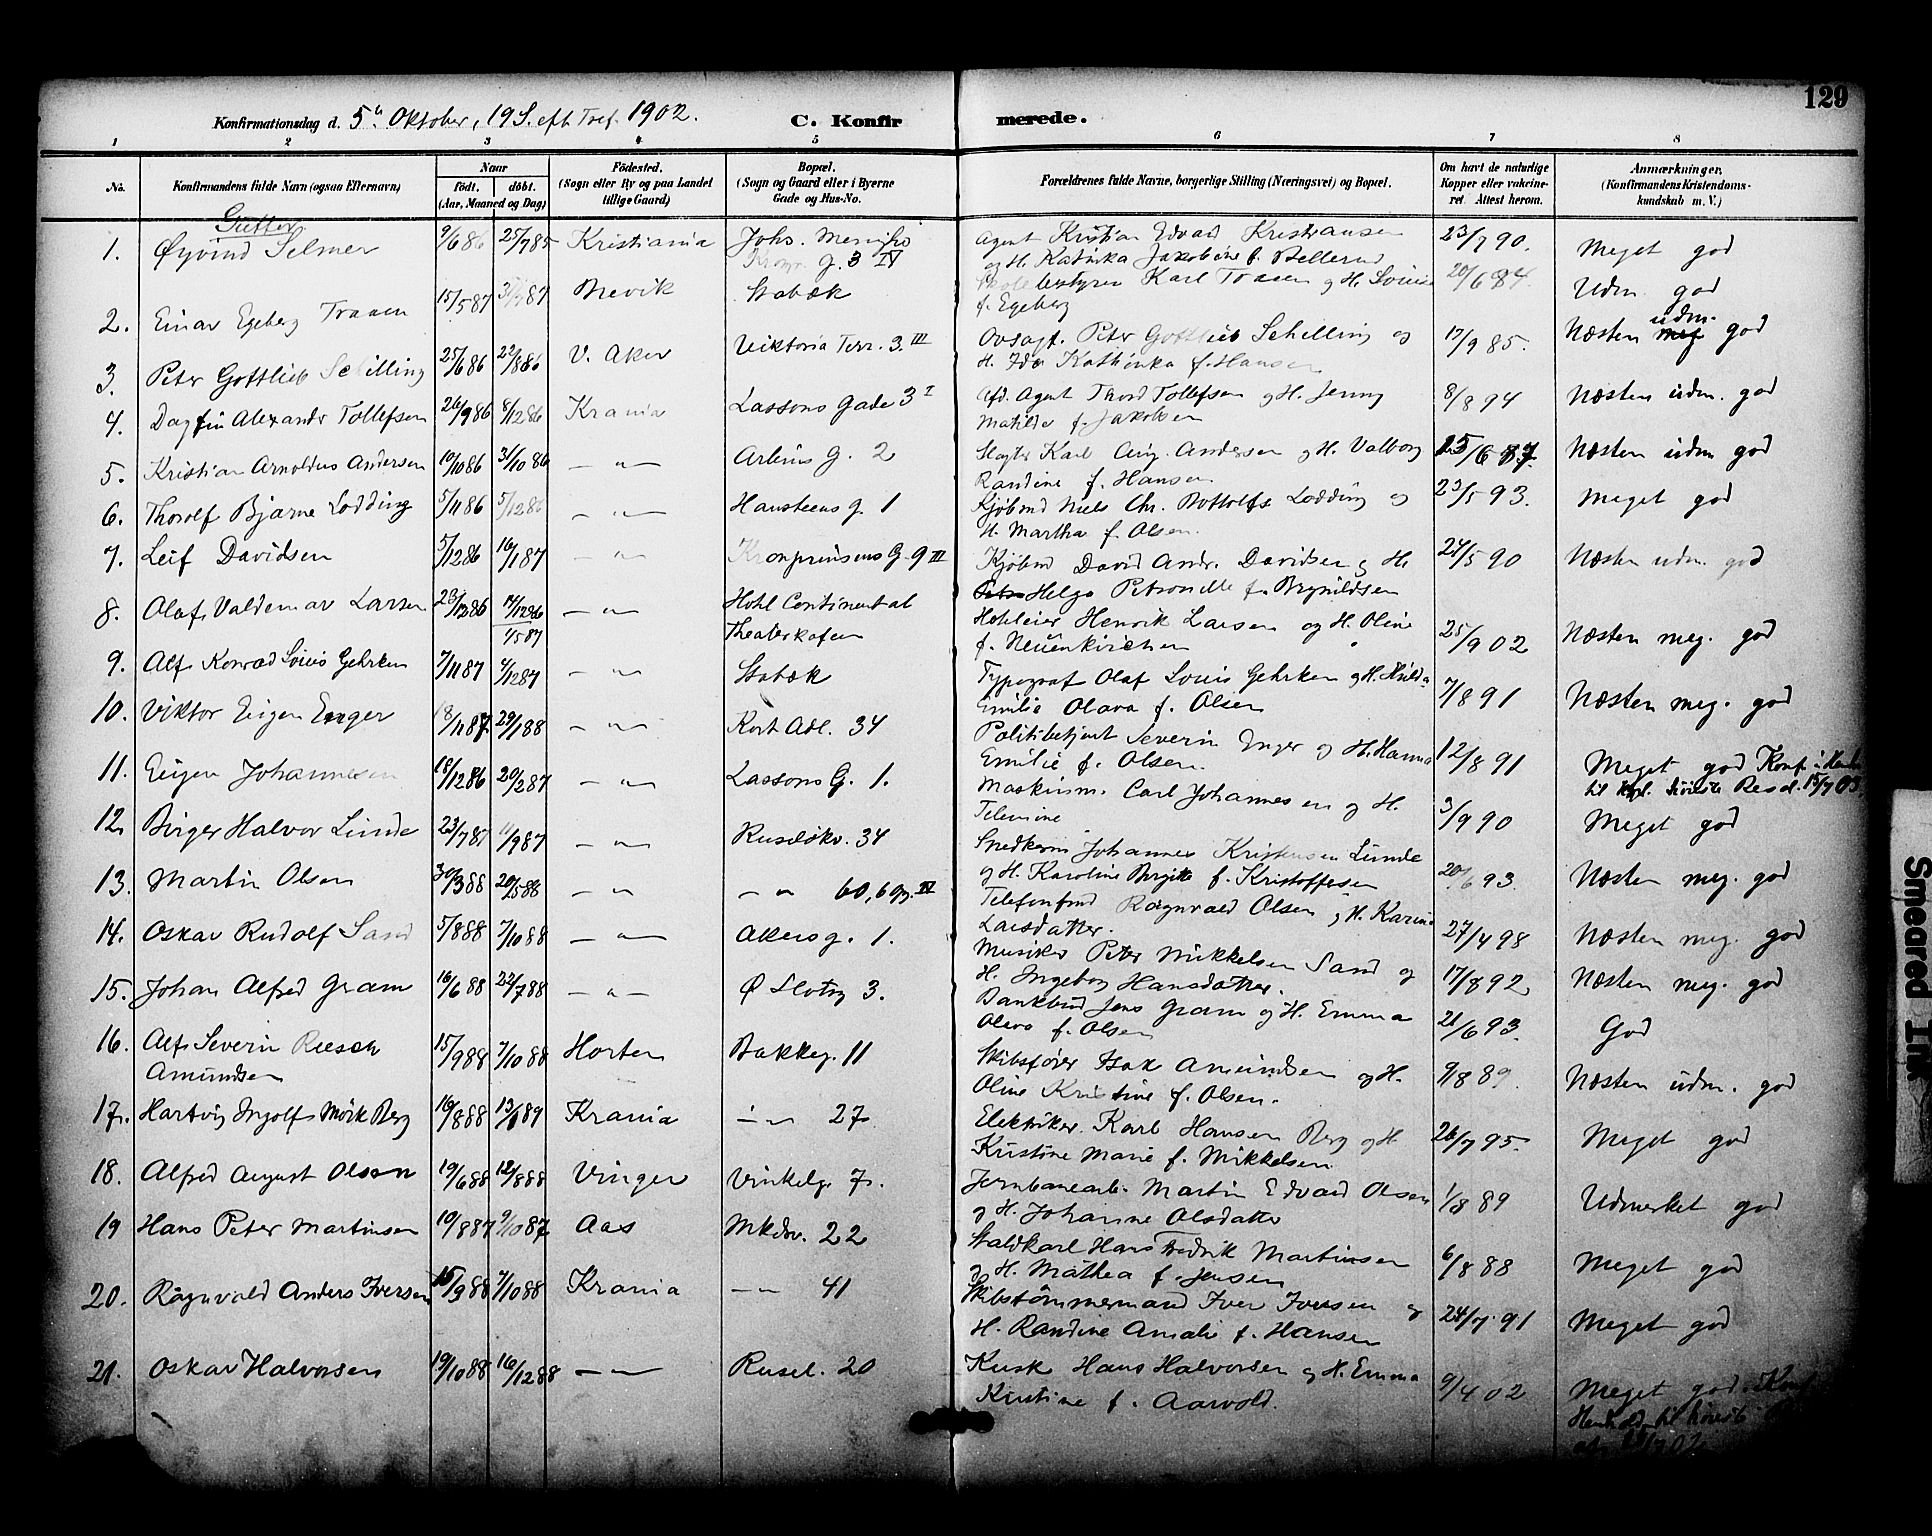 129
Konfirmationsdag d. 5te Oktober, 19 S. eft. Tref. 1902. C. Konfirmerede.
1 2 3 4 5 6 7 8
No. Konfirmandens fulde Navn (ogsaa Efternavn) Naar födt. döbt. (Aar, Maaned og Dag) Födested. (Sogn eller By og paa Landet tillige Gaard) Bopæl. (Sogn og Gaard eller i Byerne Gade og Hus-No. Forældrenes fulde Navne, borgerlige Stilling (Næringsvei) og Bopæl. Om havt de naturlige Kopper eller vakcineret. Attest herom. Anmærkninger. (Konfirmandens Kristendomskundskab m. V.)
Gutter
1. Øyvind Selmer 9/6 86 25/7 85 Kristiania Johs. g. 3 IV Agent Kristian Edvard Kristiansen 23/7 90. Meget god
og H. Katinka Jakobine f. Bellerud
2. Einar Egeberg Traaen 15/5 87 Brevik Stabæk Skolebestyrer Karl Traaen og H. Lovise 20/6 94. Udm. god
f. Egeberg
3. Peter Gottlieb Schilling 25/6 86 22/8 86 V. Aker Viktoria Terr. 3. III Ovsagf. Peter Gottlieb Schilling og 17/9 85. Næsten udm. god
H. Ida Kathinka f. Hansen
4. Dagfin Alexander Tollefsen 26/9 86 8/12 86 Krania Lassons Gade 3 I Afd. Agent Thord Tollefsen og H. Jenny 8/8 94 Næsten udm. god
Matilde f. Jakobsen
5. Kristian Arnoldus Andersen 10/10 86 31/10 86 — " — Arbins g. 2 Slagter Karl Aug. Andersen og H. Valborg 15/6 87. Næsten udm god
Randine f. Hansen
6. Thorolf Bjarne Lodding 5/11 86 5/12 86 — " — Hansteens g. 1 Kjøbmd Niels Chr. Bottolfs Lodding og 23/5 93. Meget god
H. Martha f. Olsen.
7. Leif Davidsen 5/12 86 16/1 87 " — Kronprinsens G. 9 III Kjøbmd David Andr. Davidsen og H. 24/5 90 Næsten udm. god
Helga Petronelle f. Brynildsen
8. Olaf Valdemar Larsen 23/12 86 — " — Hotel Continental Hoteleier Henrik Larsen og H. Oline 25/9 02 Næsten meg. god
1/5 87 Theaterkafeen f. Neuenkirchen
9. Alf Konrad Louis Gehrken 7/11 87 4/12 87 — " — Stabæk Typograf Olaf Louis Gehrken og H. Hulda 7/8 91 Næsten meg. god
Emilie Olava f. Olsen
10. Viktor Eugen Enger 18/11 87 29/1 88 — " — Kort Adl. 34 Politibetjent Severin Enger og H. Hanna 12/8 91 Meget god Konf. i Henh.
Emilie f. Olsen. til kgl. Resol. 15/7 03
11. Eugen Johannesen 18/12 86 20/2 87 — " — Lassons G. 1. Maskinm. Carl Johannesen og H. 3/9 90 Meget god
12. Birger Halvor Lunde 23/7 87 11/9 87 — " — Ruseløkv. 34 Snedkerm Johannes Kristensen Lunde 20/6 93. Næsten meg. god
og H. Karoline Birgitte f. Kristoffersen
13. Martin Olsen 30/3 88 20/5 88 — " — — " 60, opg. IV Telefonfmd Ragnvald Olsen og H. Karine 27/4 98 Næsten meg. god
Larsdatter.
14. Oskar Rudolf Sand 5/8 88 7/10 88 — " — Akersg. 1. Musiker Peter Mikkelsen Sand og 17/8 92 Næsten meg. god
H. Ingeborg Hansdatter.
15. Johan Alfred Gram 16/6 88 22/7 88 — " — Ø Slotsg 3. Bankbud Jens Gram og H. Emma 21/6 93. God
Olava f. Olsen
16. Alf Severin Reesch 15/9 88 7/10 88 Horten Bakkeg. 11 Skibsfører Isak Amundsen og H. 9/8 89. Næsten udm. god
Amundsen Oline Kristine f. Olsen.
17. Hartvig Ingolf Mørk Berg 16/8 88 13/1 89 Krania — " 27 Elektriker. Karl Hansen Berg og H 26/7 95. Meget god
Kristine Marie f. Mikkelsen
18. Alfred August Olsen 19/6 88 12/8 88 Vinger Vinkelg. 7. Jernbanearb. Martin Edvard Olsen 1/8 89 Udmerket god
og H. Johanne Olsdatter
19 Hans Peter Martinsen 10/8 87 9/10 87 Aas Mkdv. 22 Staldkarl Hans Fredrik Martinsen 6/8 88 Meget god
og H. Mathea f. Jensen
20. Ragnvald Anders Iversen 15/9 88 7/10 88 Krania — " 41 Skibstømmermand Iver Iversen og 24/7 91 Meget god
H. Randine Amalie f. Hansen
21. Oskar Halvorsen 19/10 88 16/12 88 — " — Rusel. 20 Kusk Hans Halvorsen og H. Emma 9/4 02 Meget god. Konf
Kristine f. Aarvold. Henhold til
Smeared Ink